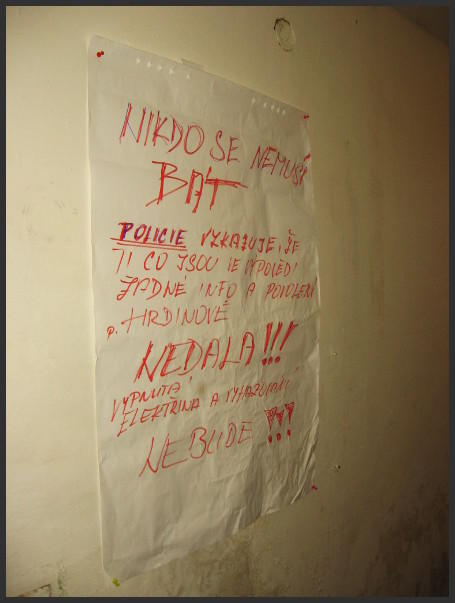 NIKDO SE NEMUSÍ
BÁT
POLICIE VZKAZUJE, ŽE
TI CO JSOU VE VÝPOLEDI
ŽÁDNÉ INFO A POVOLENÍ
p. HRDINOVÉ
NEDALA!!!
VYPNUTÁ
ELEKTŘINA A VYHAZOVÁNÍ
NEBUDE !?!